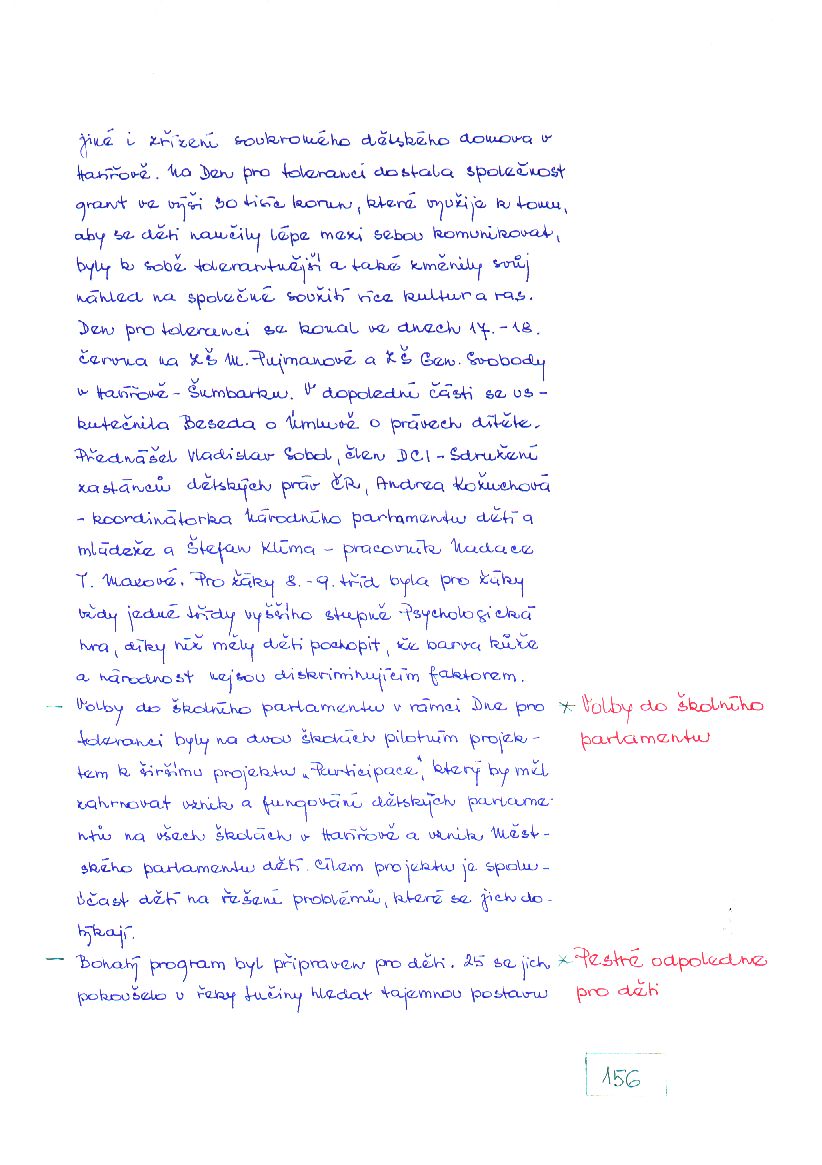 jiné i zřízení soukromého dětského domova v
Havířově. Na Den pro toleranci dostala společnost
grant ve výši 30 tisíc korun, které využije k tomu,
aby se děti naučily lépe mezi sebou komunikovat,
byly k sobě tolerantnější a také změnily svůj
náhled na společné soužití více kultur a ras.
Den pro toleranci se konal ve dnech 17.-18.
června na ZŠ M. Pujmanové a ZŠ Gen. Svobody
v Havířově - Šumbarku. V dopolední části se us-
kutečnila Beseda o Úmluvě o právech dítěte.
Přednášel Vladislav Sobol, člen DCI - Sdružení
zastánců dětských práv ČR, Andrea Kožuchová
- koordinátorka Národního parlamentu dětí a
mládeže a Štefan Klíma - pracovník Nadace
T. Maxové. Pro žáky 8.-9. tříd byla pro žáky
vždy jedné třídy vyššího stupně Psychologická
hra, díky níž měly děti pochopit, že barva kůže
a národnost nejsou diskriminujícím faktorem.
- Volby do školního parlamentu v rámci Dne pro * Volby do školního
toleranci byly na dvou školách pilotním projek- parlamentu
tem k širšímu projektu „Participace", který by měl
zahrnovat vznik a fungování dětských parlame-
ntů na všech školách v Havířově a vznik Měst-
ského parlamentu dětí. Cílem projektu je spolu-
účast dětí na řešení problémů, které se jich do-
týkají.
- Bohatý program byl připraven pro děti. 25 se jich * Pestré odpoledne
pokoušelo u řeky Lučiny hledat tajemnou postavu pro děti
156